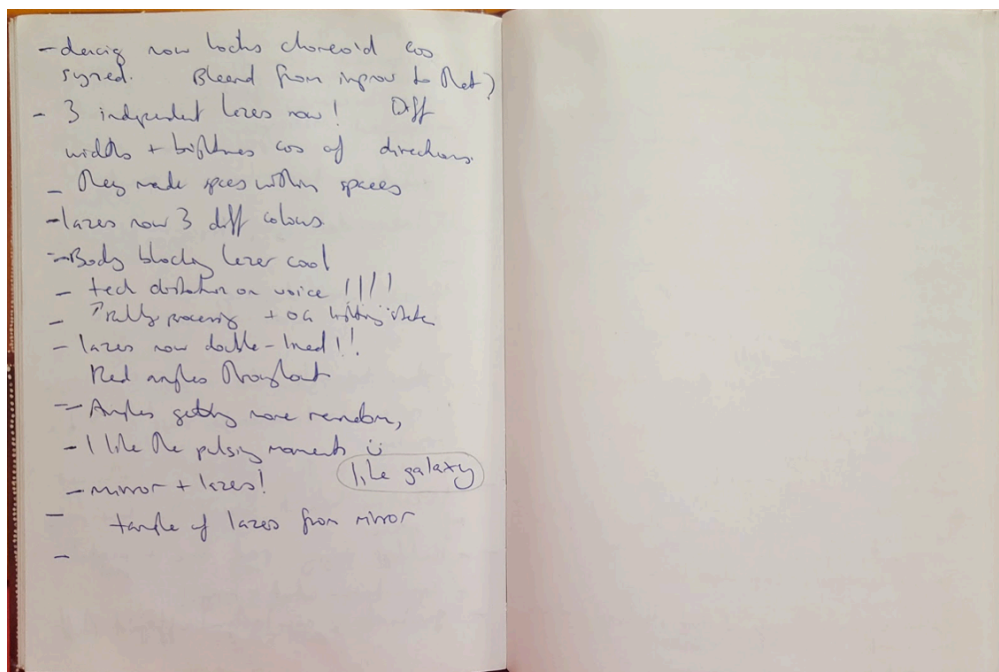 - dancing now looks choreo'd cos
synced. Blend from improv to that?
- 3 independent lazes now! Diff
widths + brightness cos of directions.
- They made spaces within spaces
- lazes now 3 diff colours
- Body blocking lazer cool
- tech distortion on voice !!!!
processing + OG
- lazes now double-lined!!
Red angles throughout
- Angles getting more random,
- I like the pulsing moments ü
like galaxy
- mirror + lazes!
- tangle of lazes from mirror
-